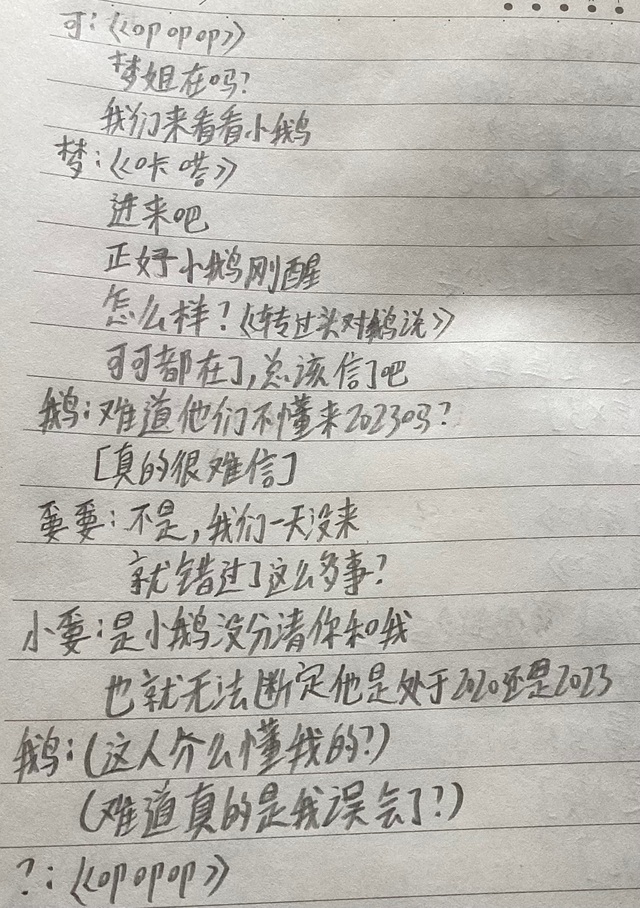 可：《《op op op》》
梦姐在吗？
我们来看看小鹅
梦：《《咔嗒》》
进来吧
正好小鹅刚醒
怎么样？《《转过头对鹅说》》
可可都在了，总该信了吧
鹅：难道他们不懂来2023吗？
[真的很难信]
耍耍：不是，我们一天没来
就错过了这么多事？
小耍：是小鹅没分清你和我
也就无法断定他是处于2020还是2023
鹅：(这人介么懂我的？)
(难道真的是我误会了？)
？：《《op op op》》